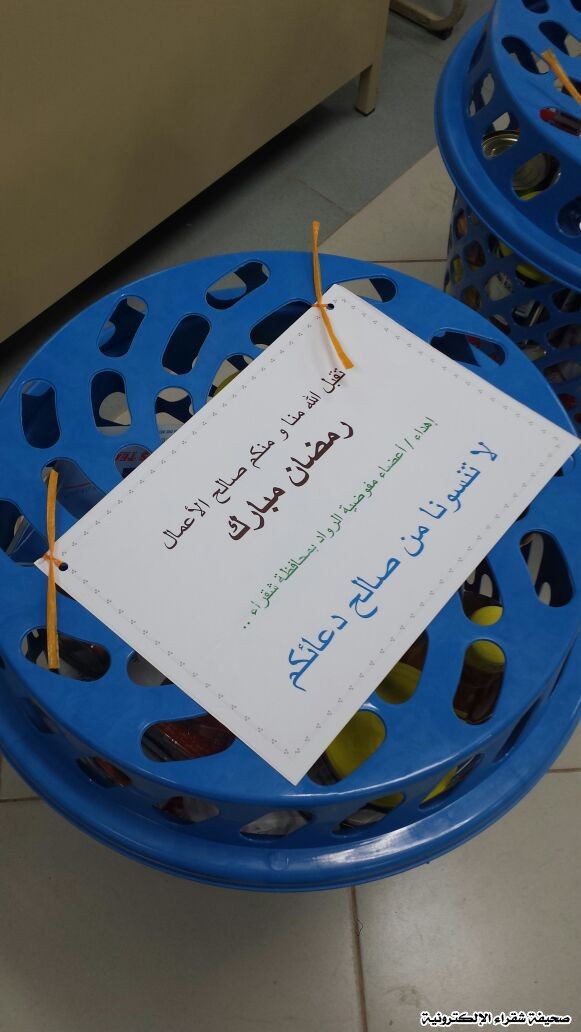 تقبل الله منا و منكم صالح الأعمال
رمضان مبارك
إهداء / أعضاء مفوضية الرواد بمحافظة شقراء ..
لا تنسونا من صالح دعائكم
صحيفة شقراء الإلكترونية